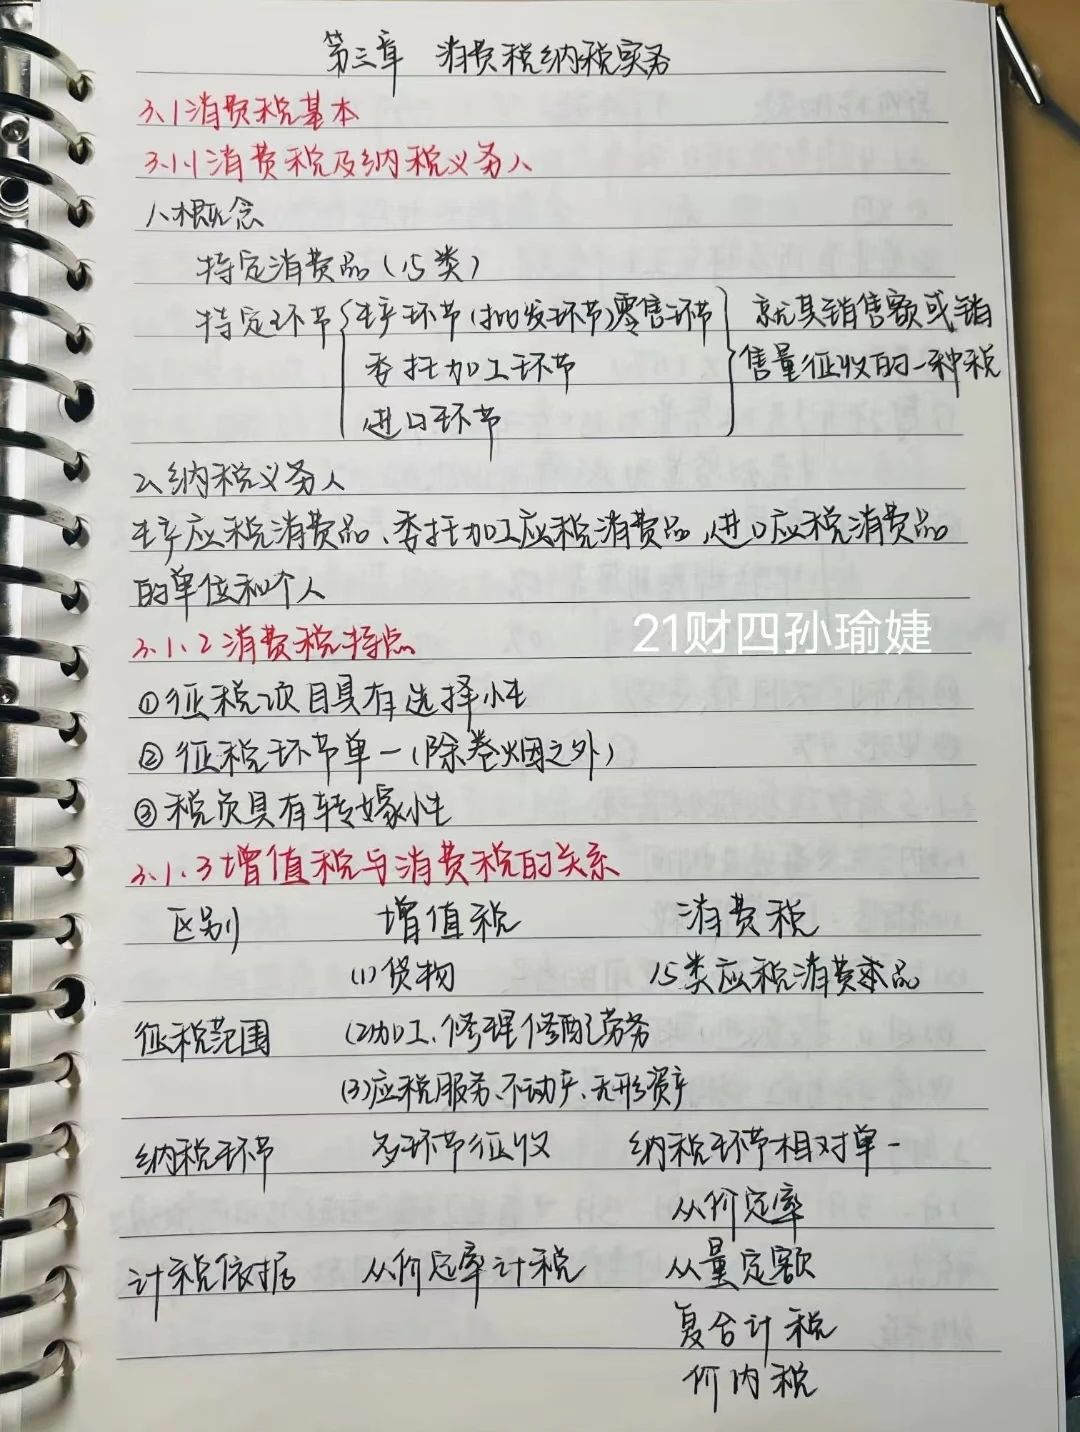 第三章 消费税纳税实务
3.1消费税基本
3.1.1消费税及纳税义务人
1、概念
特定消费品(15类)
特定环节{生产环节(批发环节)零售环节}就其销售额或销
委托加工环节 售量征收的一种税
进口环节
2、纳税义务人
生产应税消费品、委托加工应税消费品,进口应税消费品
的单位和个人
21财四孙瑜婕
3.1.2消费税特点
①征税项目具有选择性
②征税环节单一(除卷烟之外)
③税负具有转嫁性
3.1.3增值税与消费税的关系
区别 增值税 消费税
(1)货物 15类应税消费品
征税范围 (2)加工、修理修配劳务
(3)应税服务、不动产、无形资产
纳税环节 多环节征收 纳税环节相对单一
从价定率
计税依据 从价定率计税 从量定额
复合计税
价内税